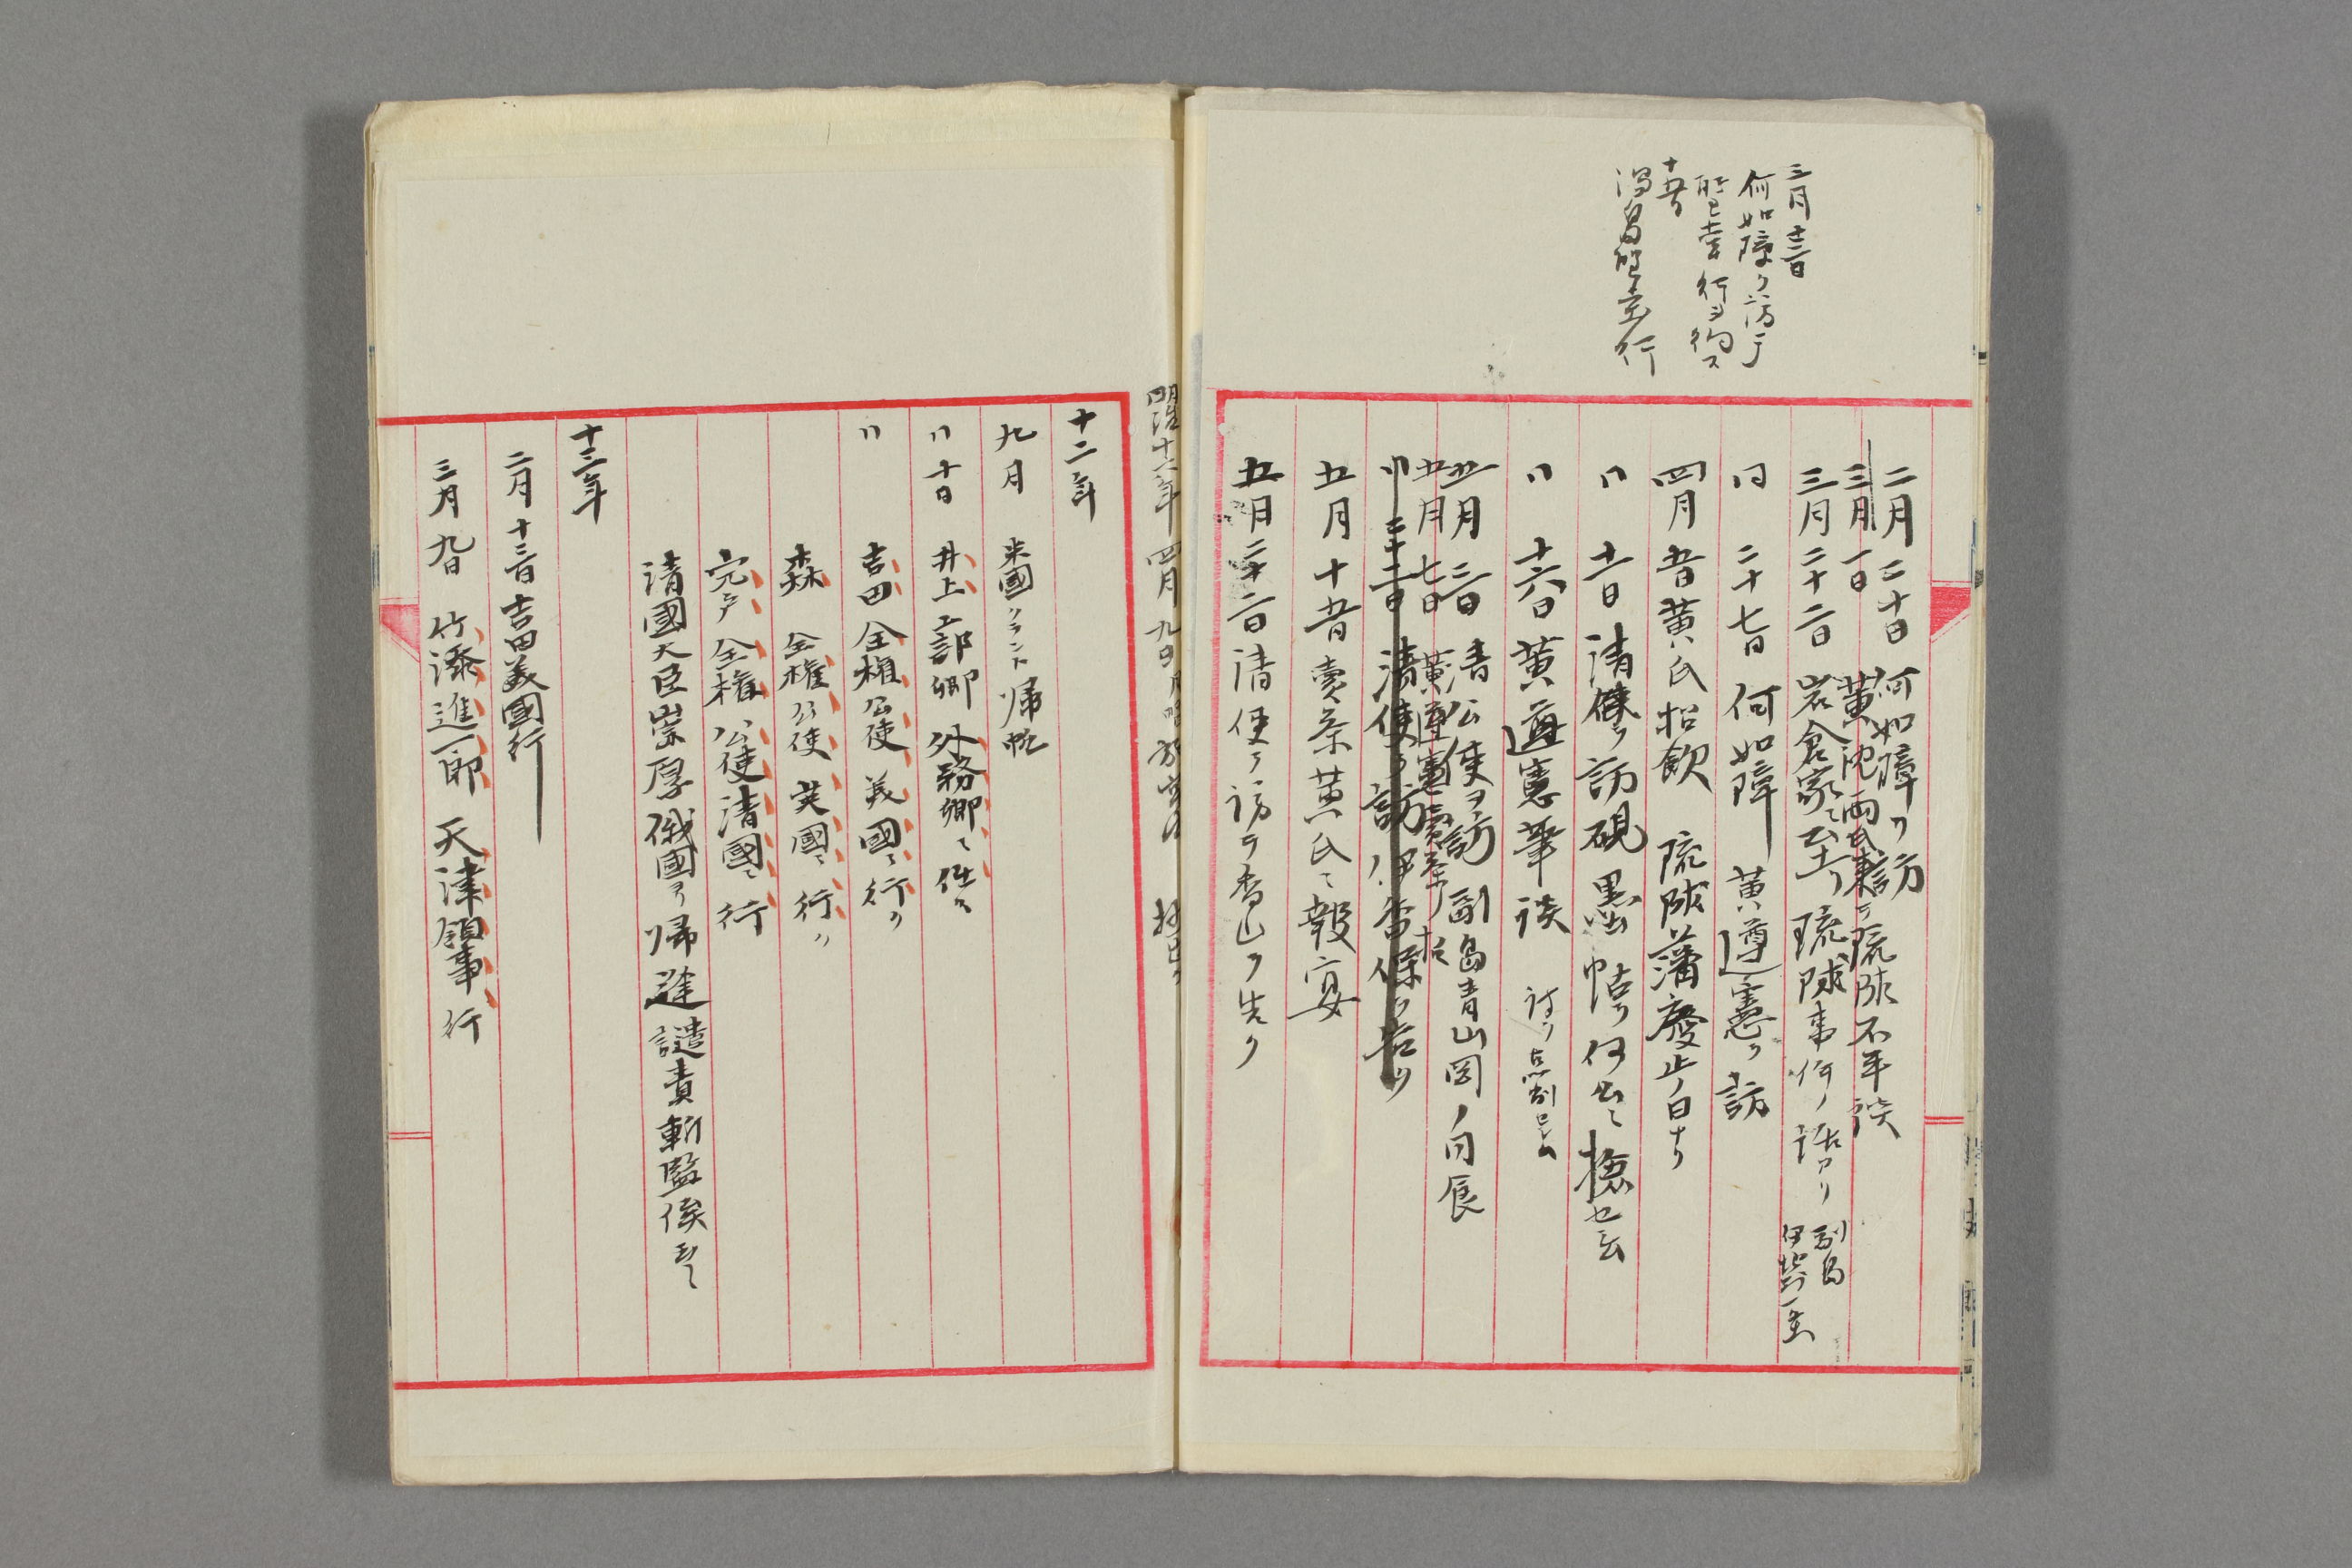 三月十三日
何如璋ヲ訪テ
行ヲ約ス
十五日
行
二月二十日 何如璋ヲ訪
三月一日 黄沈両氏来テ琉球不平談
三月二十二日 岩倉家ニ至ル 琉球事件ノ話アリ 副島
伊地知一坐
同 二十七日 何如璋 黄遵憲ヲ訪
四月五日黄氏招飲 琉球藩廃止ノ日ナリ
〃 十一日清使ヲ訪硯墨帖ヲ何公ニ
〃 十六日黄遵憲筆談 詩ヲ点削
五月三日 清公使ヲ訪 副島青山岡ノ同展
五月七日 黄遵憲
〃 二十二日 清使ヲ訪ノ伊香保ヲ告ク
五月十五日 賣茶黄氏ニ報宴
五月二十二日清使ヲ訪テ香山ヲ告ク
明治十二年四月九日
十二年
九月 米國クラント帰帆
〃十日 井上工部卿 外務卿ニ任ス
〃 吉田全権公使 美國ニ行ク
森 全権公使 英國ニ行ク
宍戸全権公使清國ニ行
清國大臣崇厚俄國ヨリ帰 譴責斬監候
十三年
二月十三日吉田美國行
三月九日 竹添進一郎 天津領事行